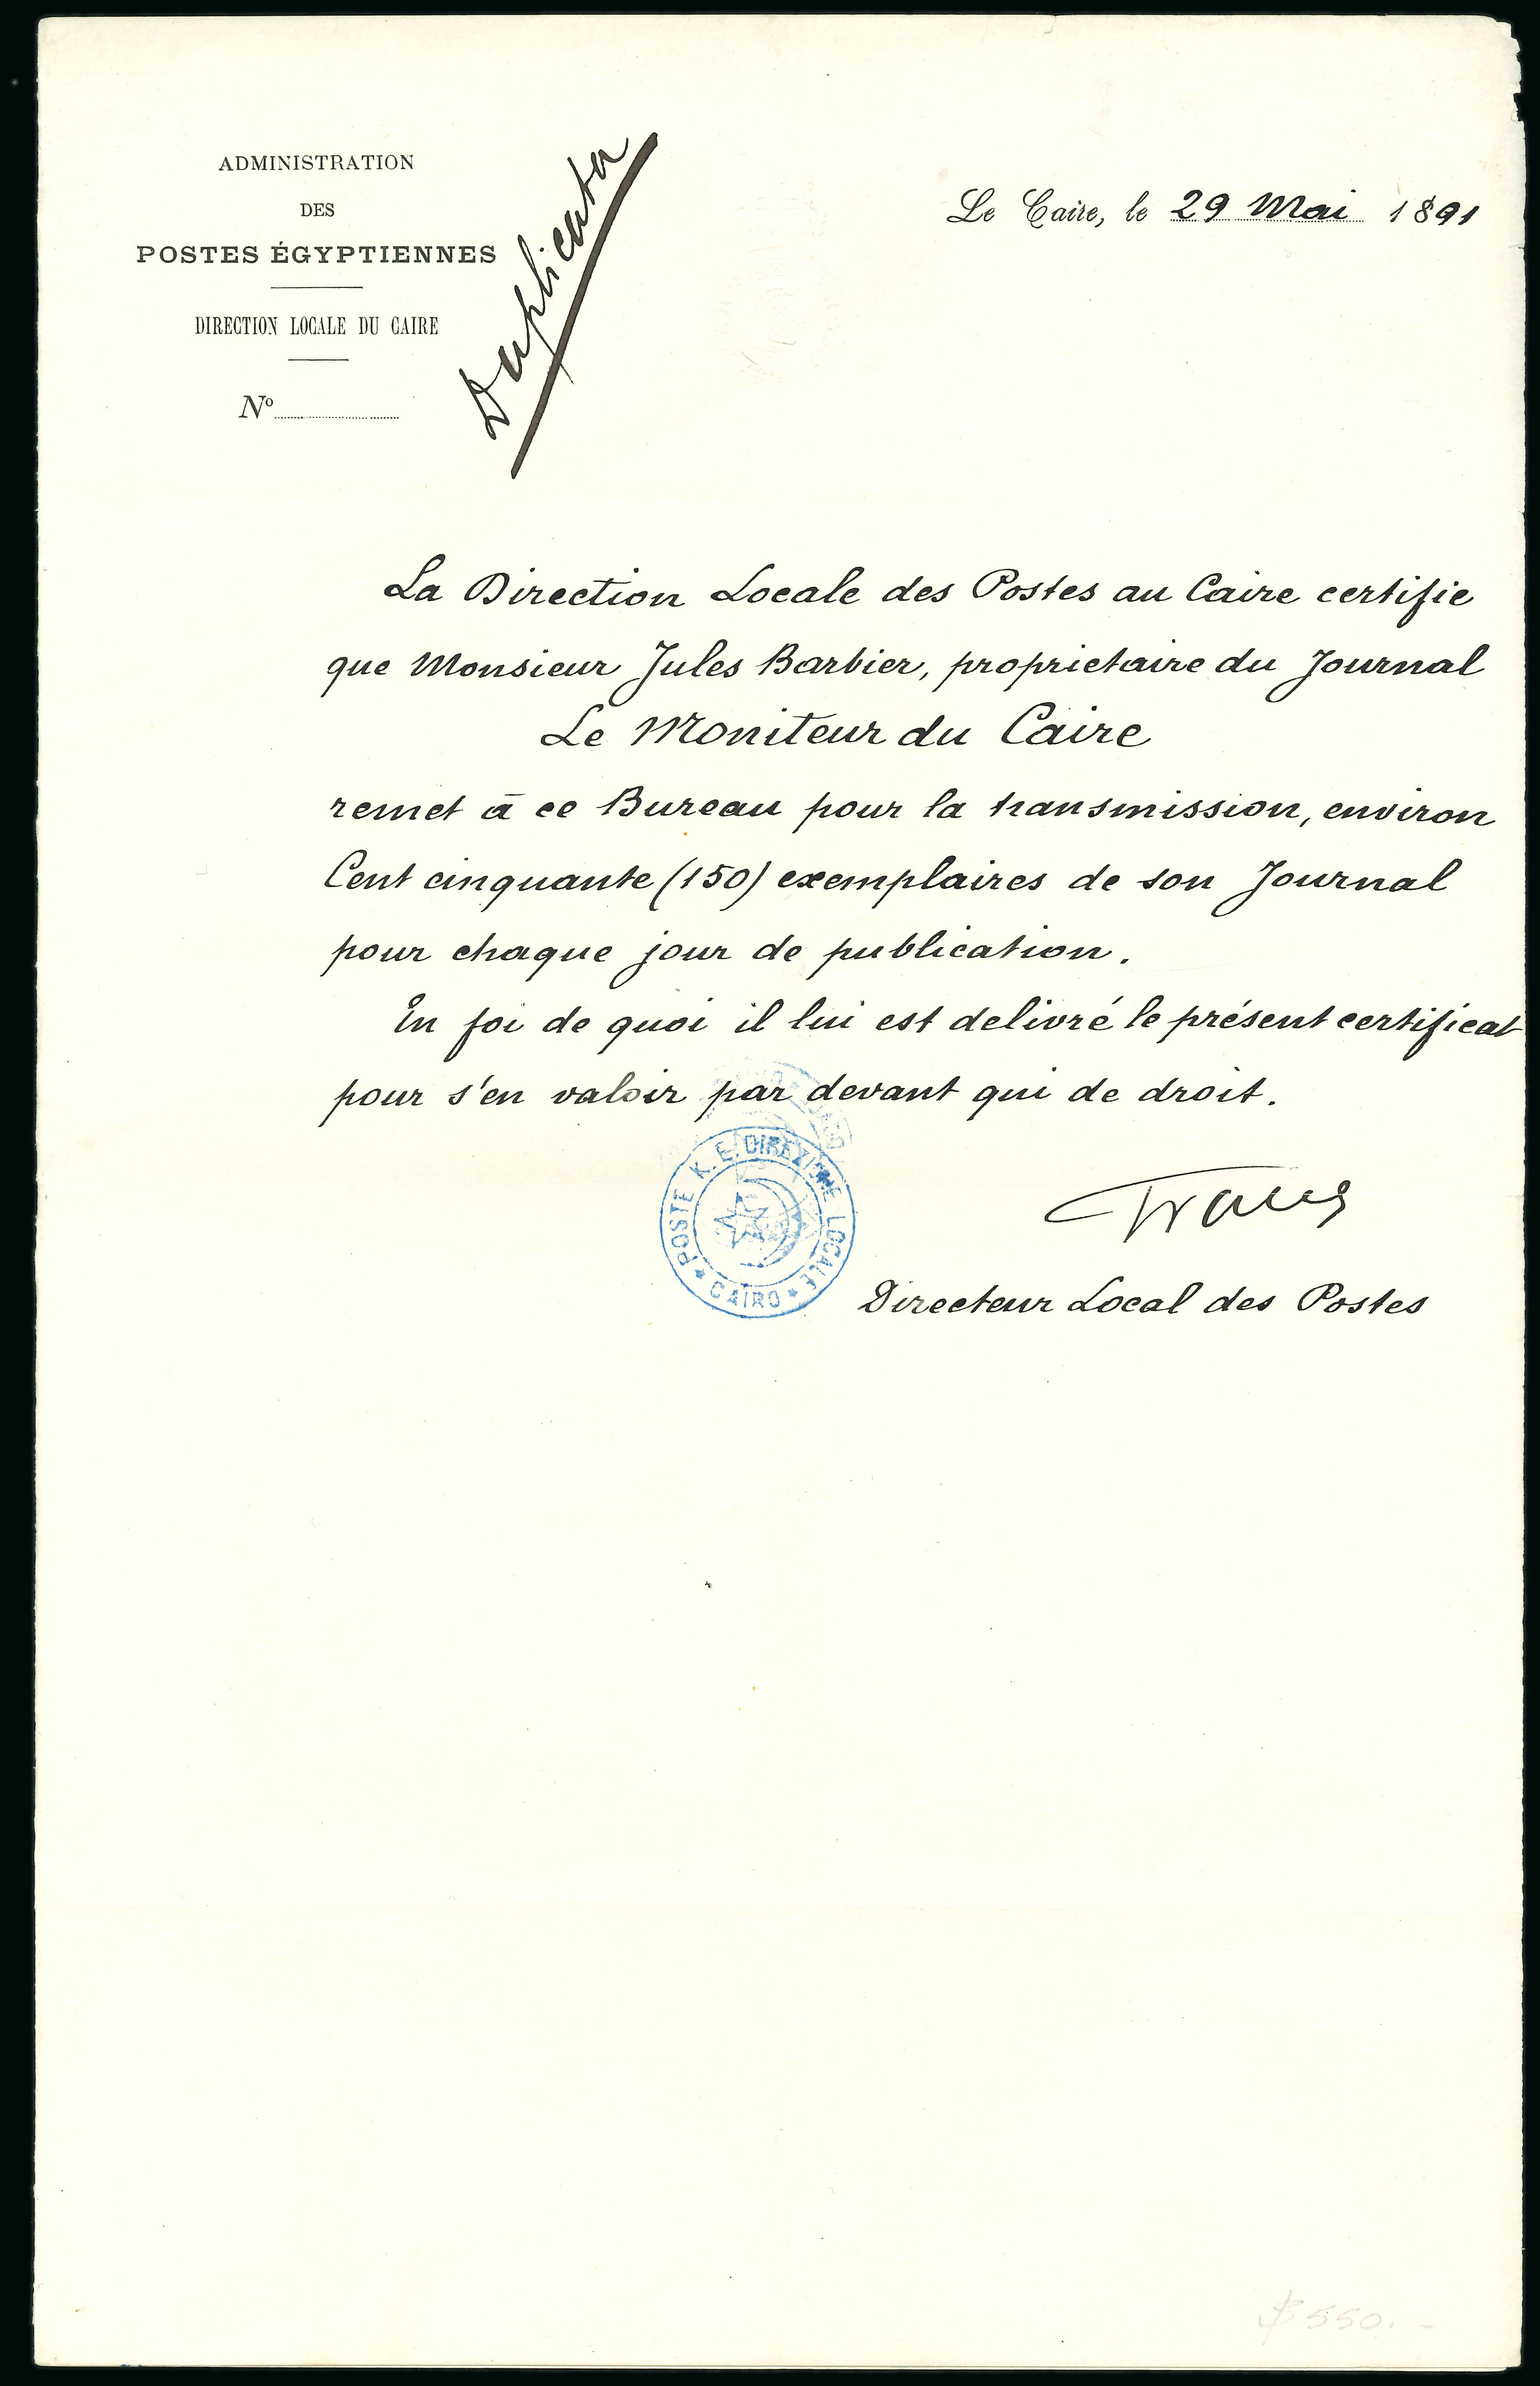 ADMINISTRATION
DES
POSTES ÉGYPTIENNES
DIRECTION LOCALE DU CAIRE
Nº
Duplicata
Le Caire, le 29 Mai 1891
La Direction Locale des Postes au Caire certifie
que Monsieur Jules Barbier, proprietaire du Journal
Le Moniteur du Caire
remet à ce Bureau pour la transmission, environ
Cent cinquante (150) exemplaires de son Journal
pour chaque jour de publication.
En foi de quoi il lui est delivré le présent certificat
pour s'en valoir par devant qui de droit.
POSTE K. E. DIREZIONE LOCALE
CAIRO
Directeur Local des Postes
$ 550.-